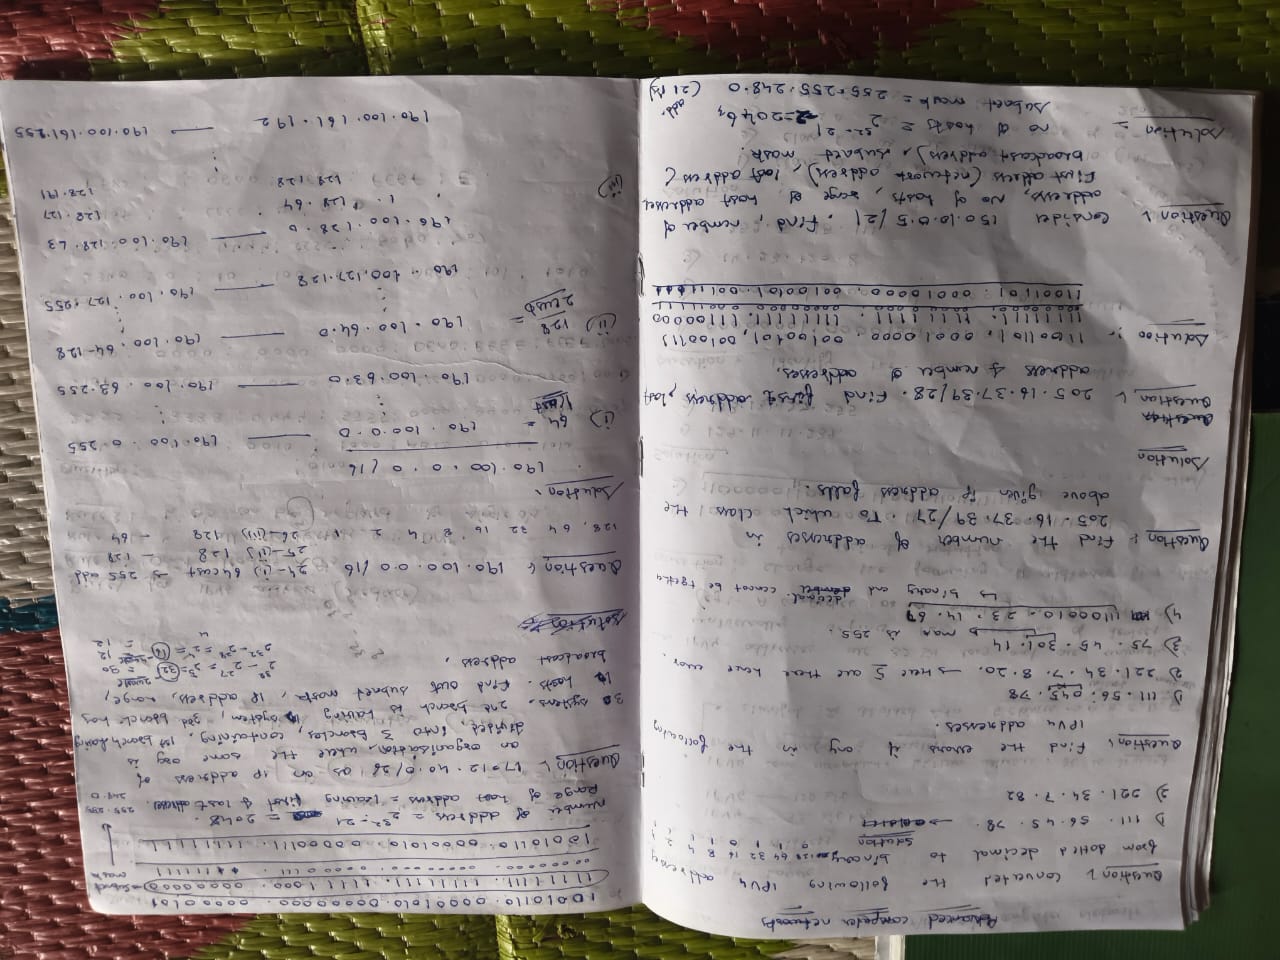 Advanced computer networks
Question: Converted the following IPV4 addresses
from dotted decimal to binary 128 64 32 16 8 4 2 1
Solution 0 1 1 0 1 1 1 1
1) 111. 56. 45. 78. →
3) 221. 34. 7. 82
Question: Find the errors if any in the following
IPV4 addresses.
1) 111. 56. 045. 78
2) 221. 34. 7. 8. 20. → Here 5 are there hence error.
3) 75. 45. 301. 14
→ max is 255.
4) 1100010. 23. 14. 67
↳ binary and decimal cannot be together
Question:- Find the number of addresses in
205. 16. 37. 39/27. To which class the
above given ip address falls.
Solution
Question: 205. 16. 37. 39/28. Find first address, last
address & number of addresses.
Solution :- 11001101. 00010000. 00100101. 00100111
11111111. 11111111. 11111111. 11100000
11001101. 00010000. 00100101. 001
Question: Consider 150.10.0.5/21. Find, number of
address, No of hosts, range of host addresses
First address (network address), last address (
broadcast address), subnet mask.
Solution = no of hosts = 2^32-21 -2=2046,
subnet mask = 255.255.248.0 (21 1's) add.
10010110. 00001010. 00000000. 00000101
11111111. 11111111. 11111000. 00000000 → subnet mask
10010110. 00001010. 00000111. 11111111
Number of address = 2^32-21 = 2048. 255.255
Range of host address = leaving first & last address. 248.0
Question: 17.12.40.0/26 as an IP address of
an organisation, where the some org is
divided into 3 branches, containing. 1st branch having
30 systems, 2nd branch is having 12 system, 3rd branch has
12 hosts. Find out subnet mask, IP address, range,
broadcast address.
2^32 - 2^27 = 2^5 = 32 2 waste = 30
2^32 - 2^28 = 2^4 = 16 = 12
= 12
Solution
Question: 190.100.0.0/16 24-(i) 64 cust → 255 add
25-(ii) 128 - 128
128, 64 32 16 8 4 2 1 26-(iii) 128 - 64
Solution:
190.100.0.0/16
(i) 64 = 190.100.0.0 —— 190.100.0.255
1 cust
190.100.63.0 —— 190.100.63.255
(ii) 128 = 190.100.64.0 —— 190.100.64-128
2 cust
190.100.127.128 —— 190.100.127.255
190.100.128.0 —— 190.100.128.63
(iii) 128.64 128.127
128.128 128.191
190.100.161.192 —— 190.100.161.255